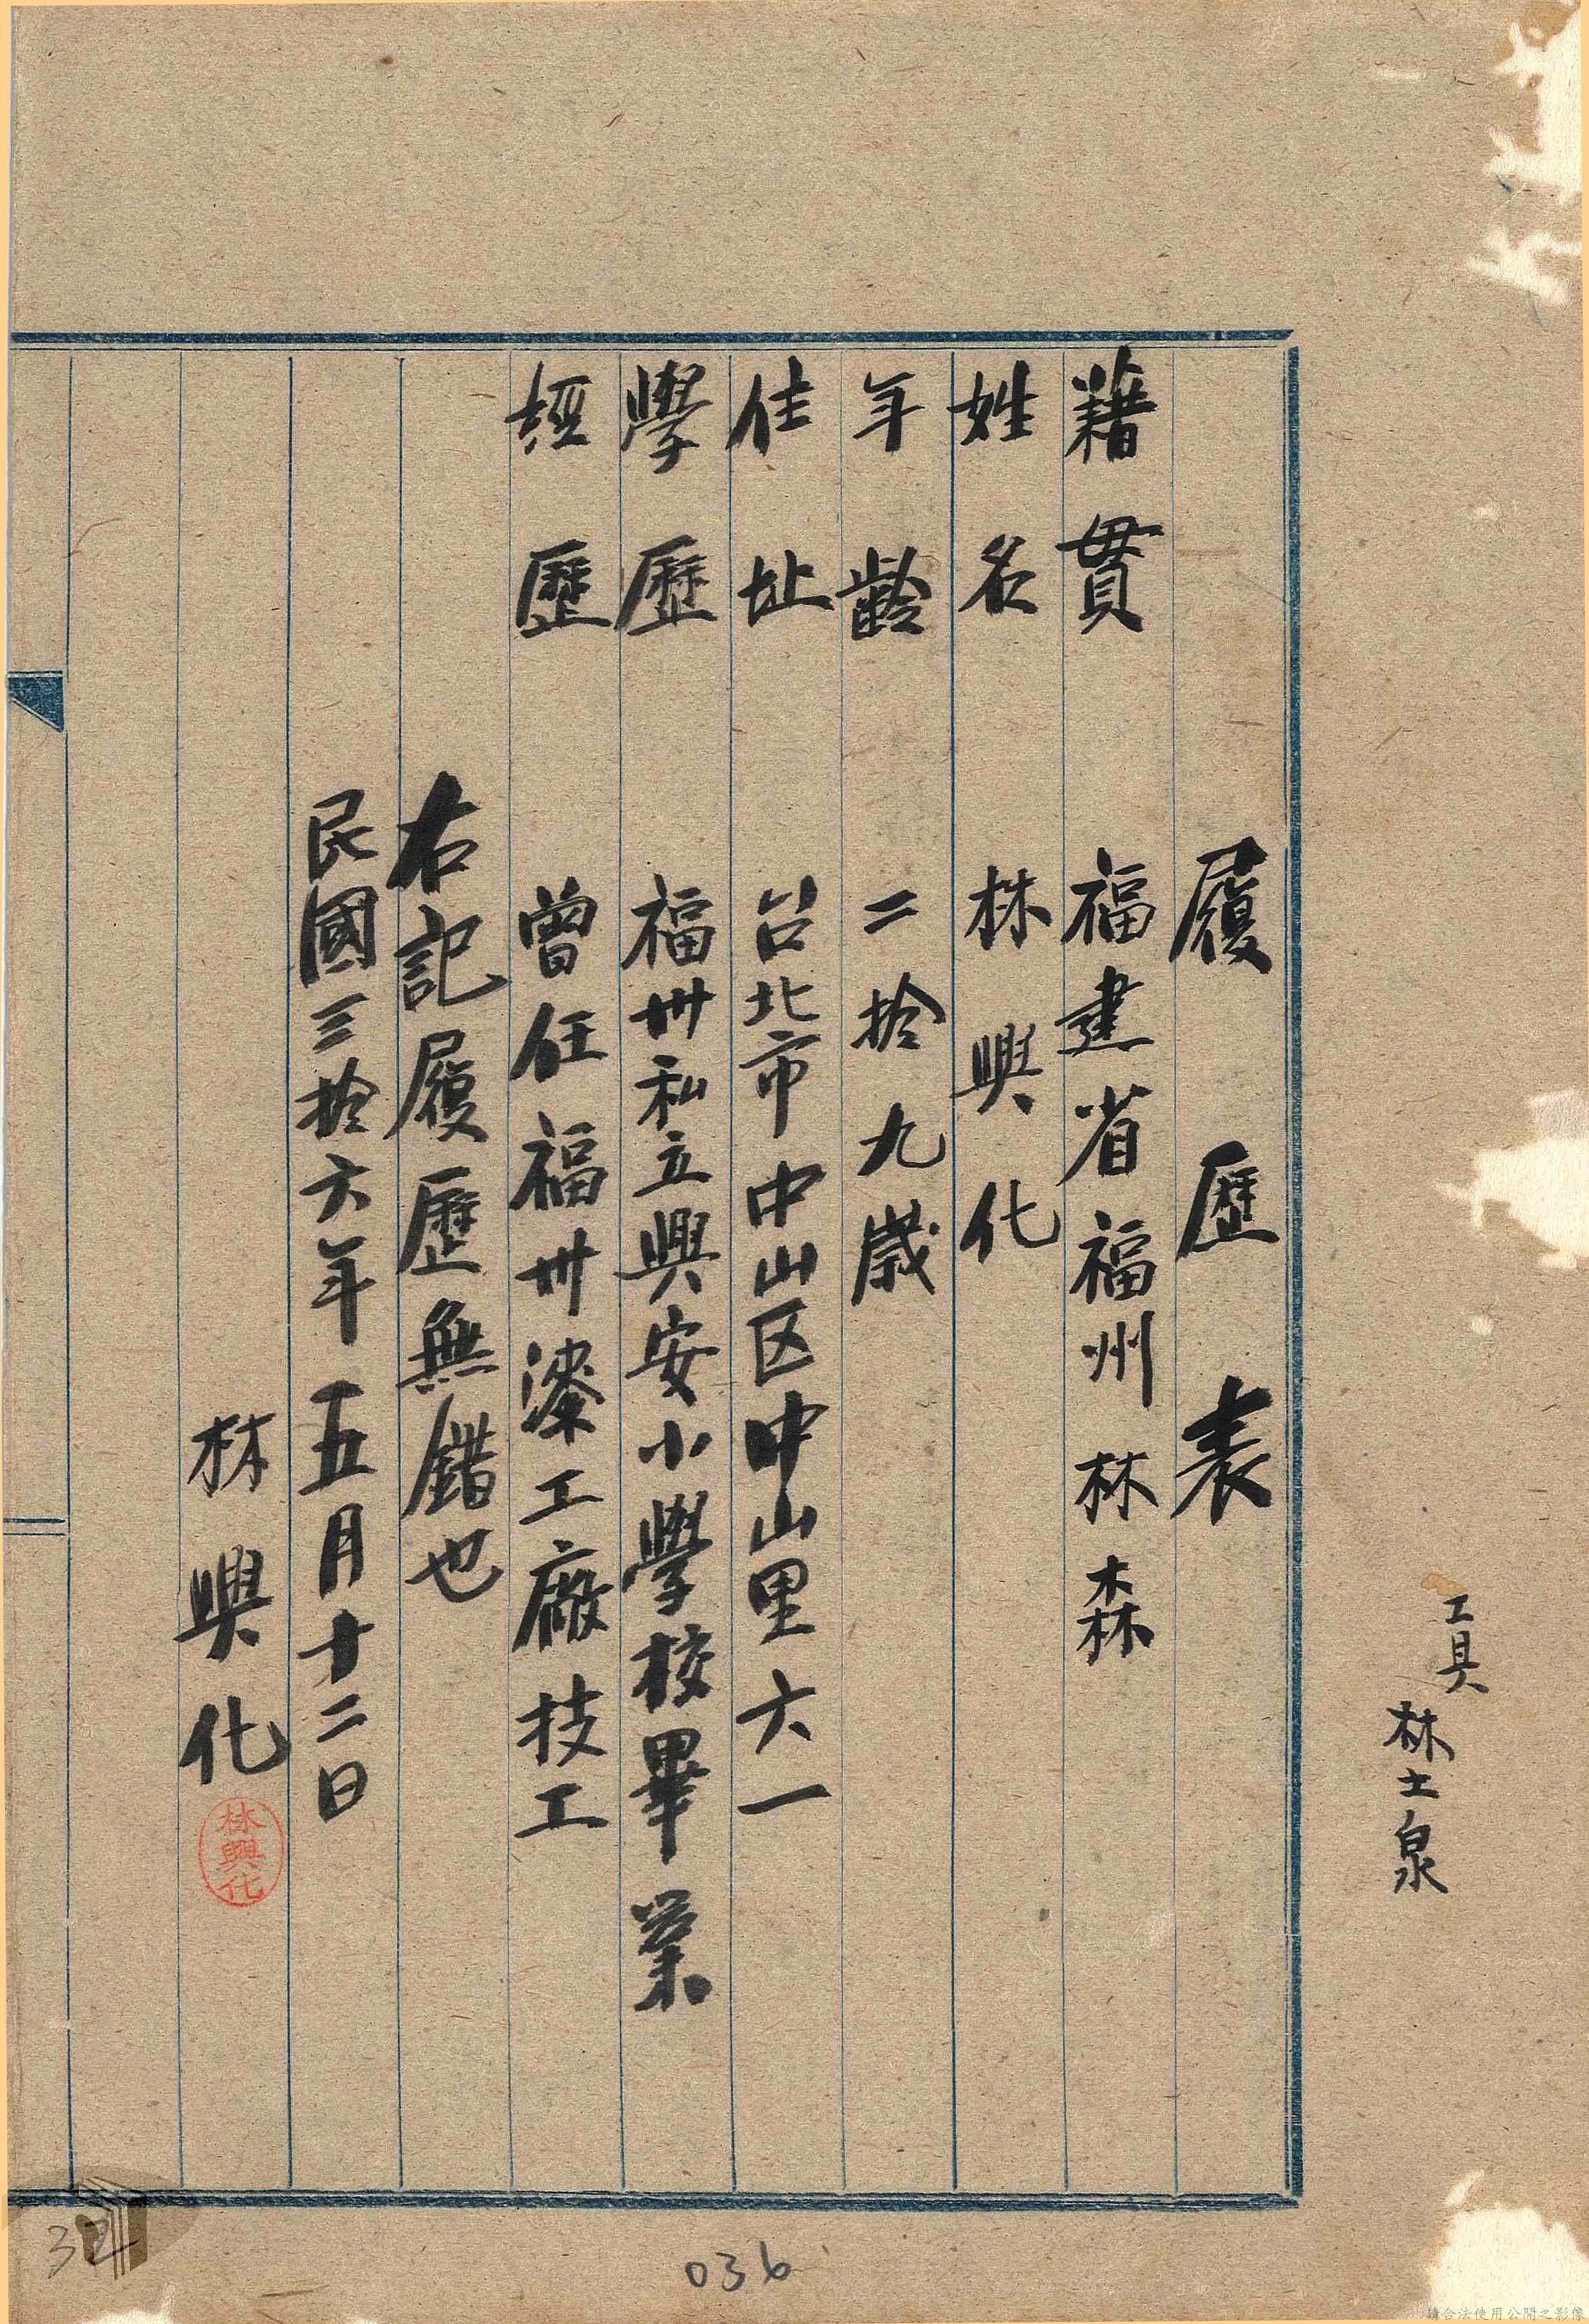 工具
林士泉
履歷表
藉貫 福建省福州林森
姓名 林興化
年齡 二拾九歲
住址 台北市中山区中山里六一
學歷 福卅私立興安小學校畢業
經歷 曾任福卅漆工廠技工
右記履歷無錯也
民國三拾六年五月十二日
林興化
林興化
32
036
請合法使用公開之影像